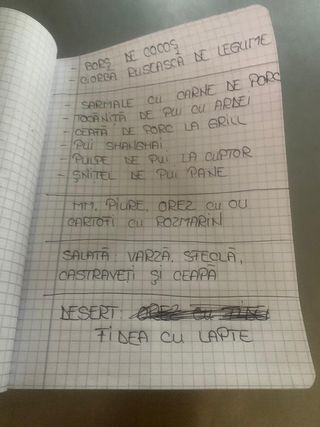 - BORȘ DE COCOȘ
- CIORBĂ RUSEASCĂ DE LEGUME
- SARMALE CU CARNE DE PORC
- TOCĂNIȚĂ DE PUI CU ARDEI
- CEAFĂ DE PORC LA GRILL
- PUI SHANGHAI
- PULPE DE PUI LA CUPTOR
- ȘNIȚEL DE PUI PANE
MM, PIURE, OREZ CU OU
CARTOFI CU ROZMARIN
SALATĂ: VARZĂ, SFECLĂ,
CASTRAVEȚI ȘI CEAPĂ
DESERT:
FIDEA CU LAPTE